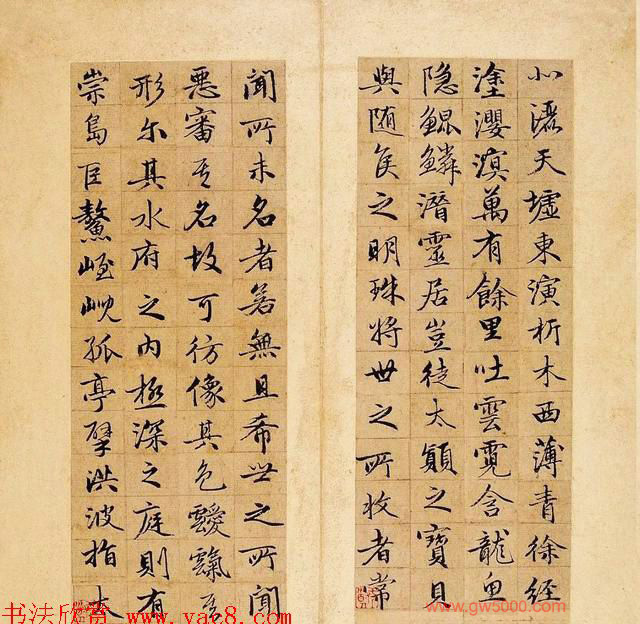 北灑天墟東演析木西薄青徐經
塗瀴溟萬有餘里吐雲霓含龍魚
隱鯤鱗潛靈居豈徒太顛之寶貝
與随侯之明珠將世之所收者常
聞所未名者若無且希世之所聞
惡審其名故可彷像其色靉霼其
形尓其水府之内極深之庭則有
崇島巨鼇峌峴孤亭擘洪波指太
书法欣赏 www.yac8.com
www.gw5000.com